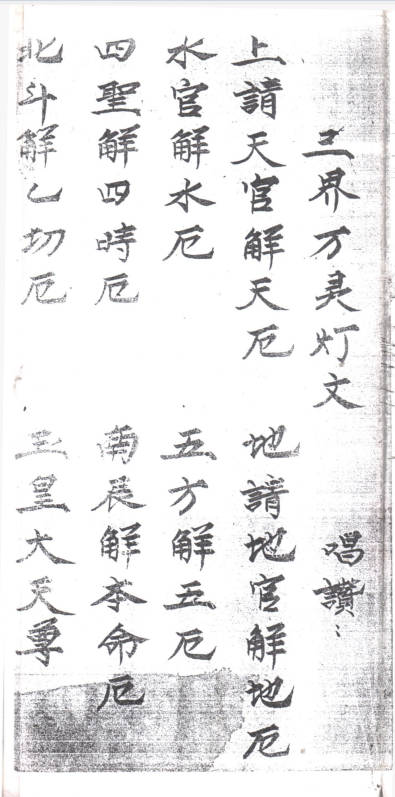 三界万灵灯文 唱讚：
上請天官解天厄 地請地官解地厄
水官解水厄 五方解五厄
四聖解四時厄 南辰解本命厄
北斗解乙切厄 玉皇大天尊